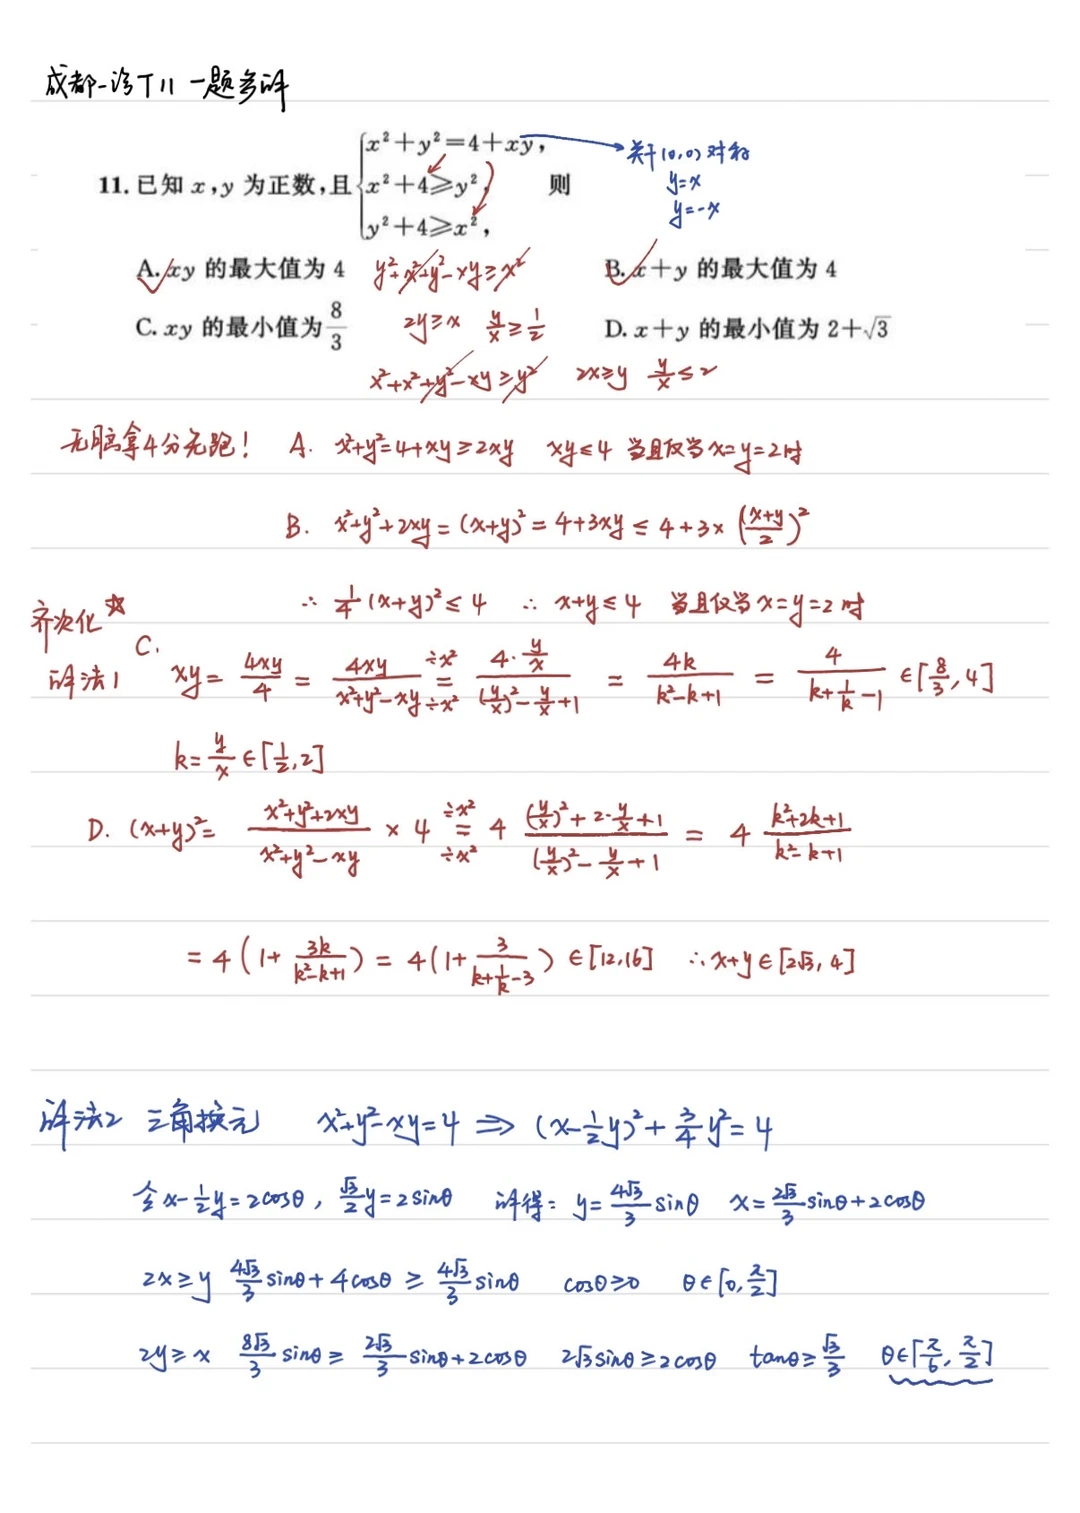 成都一诊T11 一题多解
11. 已知 x,y 为正数,且 { x²+y²=4+xy, x²+4≥y², y²+4≥x², 则
关于(0,0)对称
y=x
y=-x
A. xy 的最大值为 4 y²+x²+y²-xy≥x² B. x+y 的最大值为 4
C. xy 的最小值为 8/3 2y≥x y/x≥1/2 D. x+y 的最小值为 2+√3
x²+x²+y²-xy≥y² 2x≥y y/x≤2
无脑拿4分先跑! A. x²+y²=4+xy≥2xy xy≤4 当且仅当x=y=2时
B. x²+y²+2xy=(x+y)²=4+3xy≤4+3×((x+y)/2)²
∴ 1/4(x+y)²≤4 ∴ x+y≤4 当且仅当x=y=2时
齐次化☆
解法1 C. xy=4xy/4=4xy/(x²+y²-xy) ÷x²/÷x² = (4·y/x)/((y/x)²-y/x+1) = 4k/(k²-k+1) = 4/(k+1/k-1) ∈[8/3,4]
k=y/x∈[1/2,2]
D. (x+y)²= (x²+y²+2xy)/(x²+y²-xy) ×4 ÷x²/÷x² = 4 ((y/x)²+2·y/x+1)/((y/x)²-y/x+1) = 4 (k²+2k+1)/(k²-k+1)
=4(1+3k/(k²-k+1))=4(1+3/(k+1/k-3)) ∈[12,16] ∴x+y∈[2√3,4]
解法2 三角换元 x²+y²-xy=4 ⇒ (x-1/2y)²+3/4y²=4
令x-1/2y=2cosθ, √3/2y=2sinθ 解得: y=4√3/3 sinθ x=2√3/3 sinθ+2cosθ
2x≥y 4√3/3 sinθ+4cosθ≥4√3/3 sinθ cosθ≥0 θ∈[0,π/2]
2y≥x 8√3/3 sinθ≥2√3/3 sinθ+2cosθ 2√3sinθ≥2cosθ tanθ≥√3/3 θ∈[π/6,π/2]